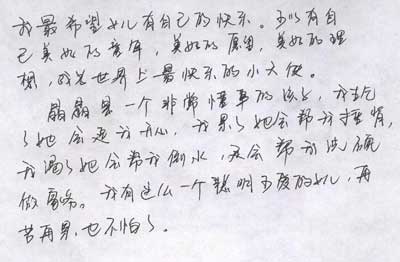 我最希望女儿有自己的快乐。可以有自
己美好的童年，美好的愿望，美好的理
想，成为世界上最快乐的小天使。
晶晶是一个非常懂事的孩子，我生气
了她会逗我开心，我累了她会帮我捶背，
我渴了她会帮我倒水，还会帮我洗碗
做家务。我有这么一个聪明可爱的女儿，再
苦再累，也不怕了。